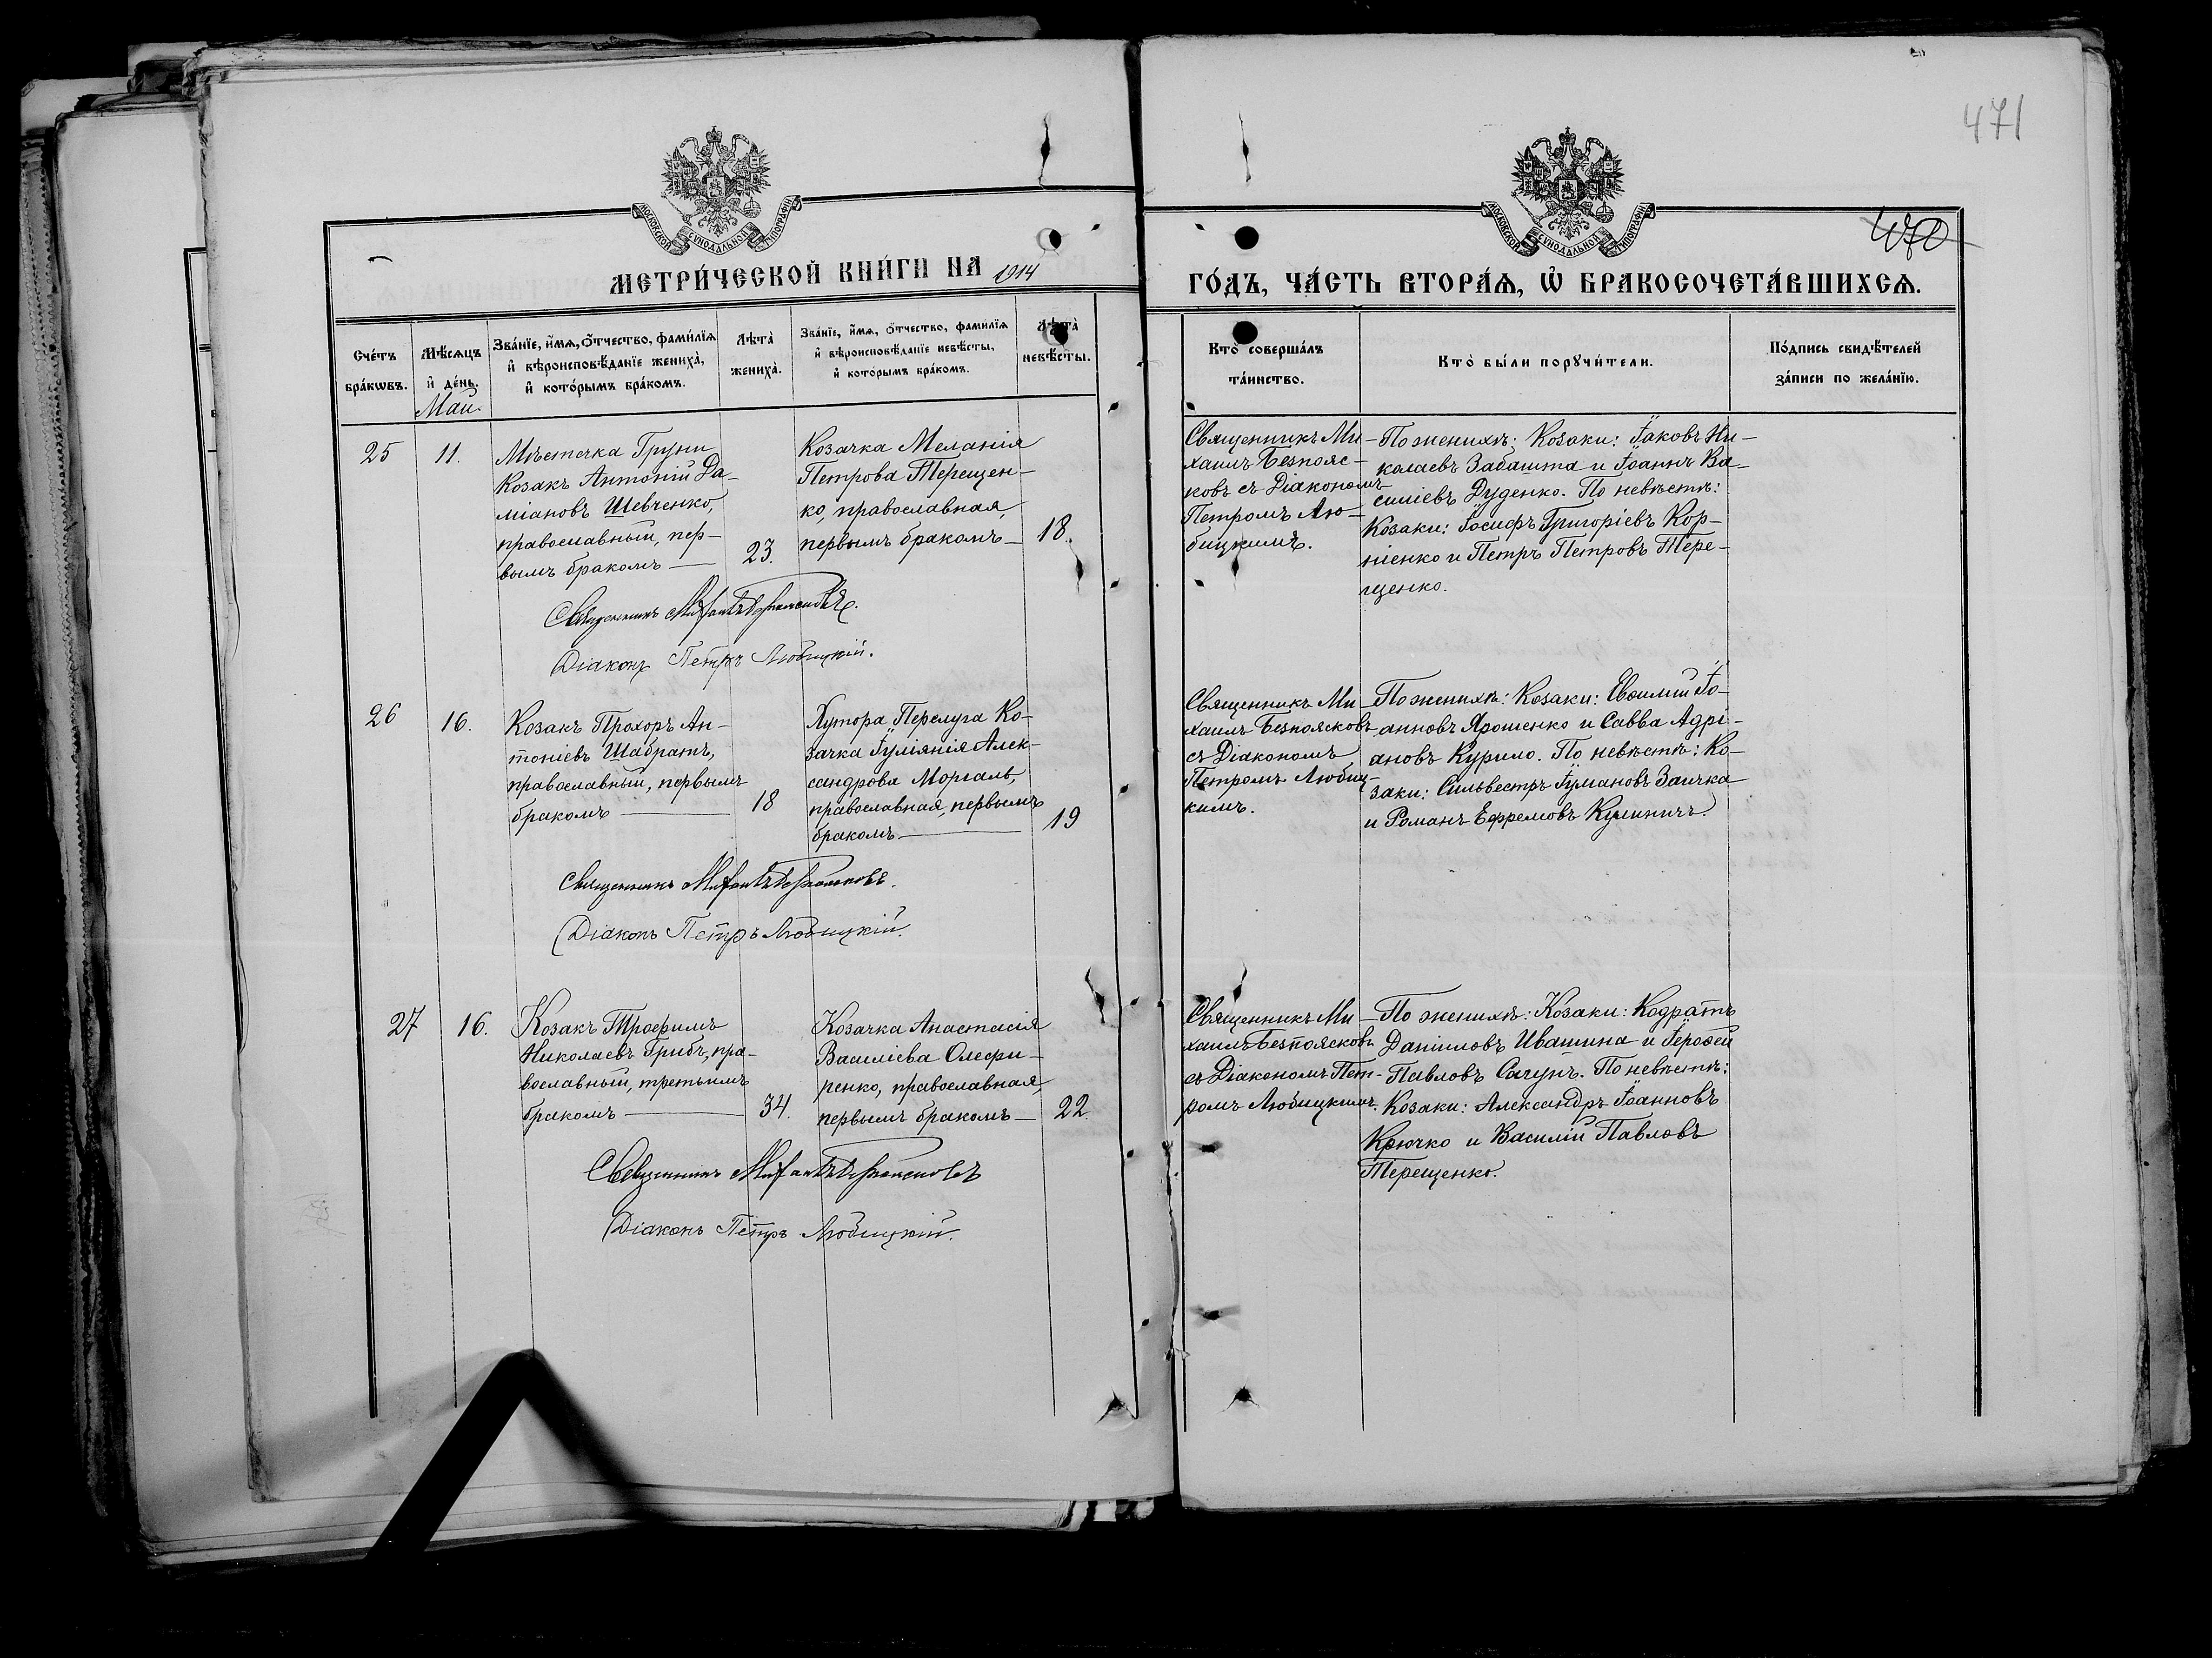 471
МОСКОВСКОЙ СУНОДАЛЬНОЙ ТИПОГРАФІИ
МОСКОВСКОЙ СУНОДАЛЬНОЙ ТИПОГРАФІИ
470
МЕТРИ́ЧЕСКОЙ КНИ́ГИ НА 1914
ГО́ДЪ, ЧА́СТЬ ВТОРА́Ѧ, Ѡ҆ БРАКОСОЧЕТА́ВШИХСѦ.
Сче́тъ бра́кѡвъ.
Мѣ́сѧцъ и҆ де́нь.
Зва́нїе, и҆́мѧ, ѻ҆́тчество, фами́лїѧ
и҆ вѣроисповѣ́данїе жениха̀,
и҆ кото́рымъ бра́комъ.
Лѣта̀ жениха̀.
Зва́нїе, и҆́мѧ, ѻ҆́тчество, фами́лїѧ
и҆ вѣроисповѣ́данїе невѣ́сты,
и҆ кото́рымъ бра́комъ.
Лѣта̀ невѣ́сты.
Кто̀ соверша́лъ
та́инство.
Кто̀ бы́ли порꙋчи́тели.
По́дпись свидѣ́телей
за́писи по жела́нїю.
Май.
25
11.
Мѣстечка Груни
Козакъ Антоній Да-
міановъ Шевченко,
православный, пер-
вымъ бракомъ —
23.
Козачка Меланія
Петрова Терещен-
ко, православная,
первымъ бракомъ —
18.
Священникъ Ми-
хаилъ Безпояс-
ковъ съ Діакономъ
Петромъ Лю-
бицкимъ.
По женихѣ: Козаки: Іаковъ Ни-
колаевъ Забашта и Іоаннъ Ва-
силіевъ Дуденко. По невѣстѣ:
Козаки: Іосифъ Григоріевъ Кор-
ніенко и Петръ Петровъ Тере-
щенко.
Священникъ Михаилъ Безпоясковъ.
Діаконъ Петръ Любицкій.
26
16.
Козакъ Прохоръ Ан-
тоніевъ Шабратъ,
православный, первымъ
бракомъ —
18
Хутора Перелуга Ко-
зачка Іуліанія Алек-
сандрова Моргаль,
православная, первымъ
бракомъ. —
19
Священникъ Ми-
хаилъ Безпоясковъ
съ Діакономъ
Петромъ Любиц-
кимъ.
По женихѣ: Козаки: Евфимій Іо-
анновъ Ярошенко и Савва Адрі-
ановъ Курило. По невѣстѣ: Ко-
заки: Сильвестръ Заичка
и Романъ Ефремовъ Кулиничъ.
Священникъ Михаилъ Безпоясковъ.
Діаконъ Петръ Любицкій.
27
16.
Козакъ Трофимъ
Николаевъ Грибъ, пра-
вославный, третьимъ
бракомъ —
34.
Козачка Анастасія
Василіева Олефи-
ренко, православная,
первымъ бракомъ —
22.
Священникъ Ми-
хаилъ Безпоясковъ
съ Діакономъ Пет-
ромъ Любицкимъ.
По женихѣ: Козаки: Кодратъ
Даніиловъ Ивашина и Іерофей
Павловъ Сагунъ. По невѣстѣ:
Козаки: Александръ Іоанновъ
Крючко и Василій Павловъ
Терещенко.
Священникъ Михаилъ Безпоясковъ
Діаконъ Петръ Любицкій.